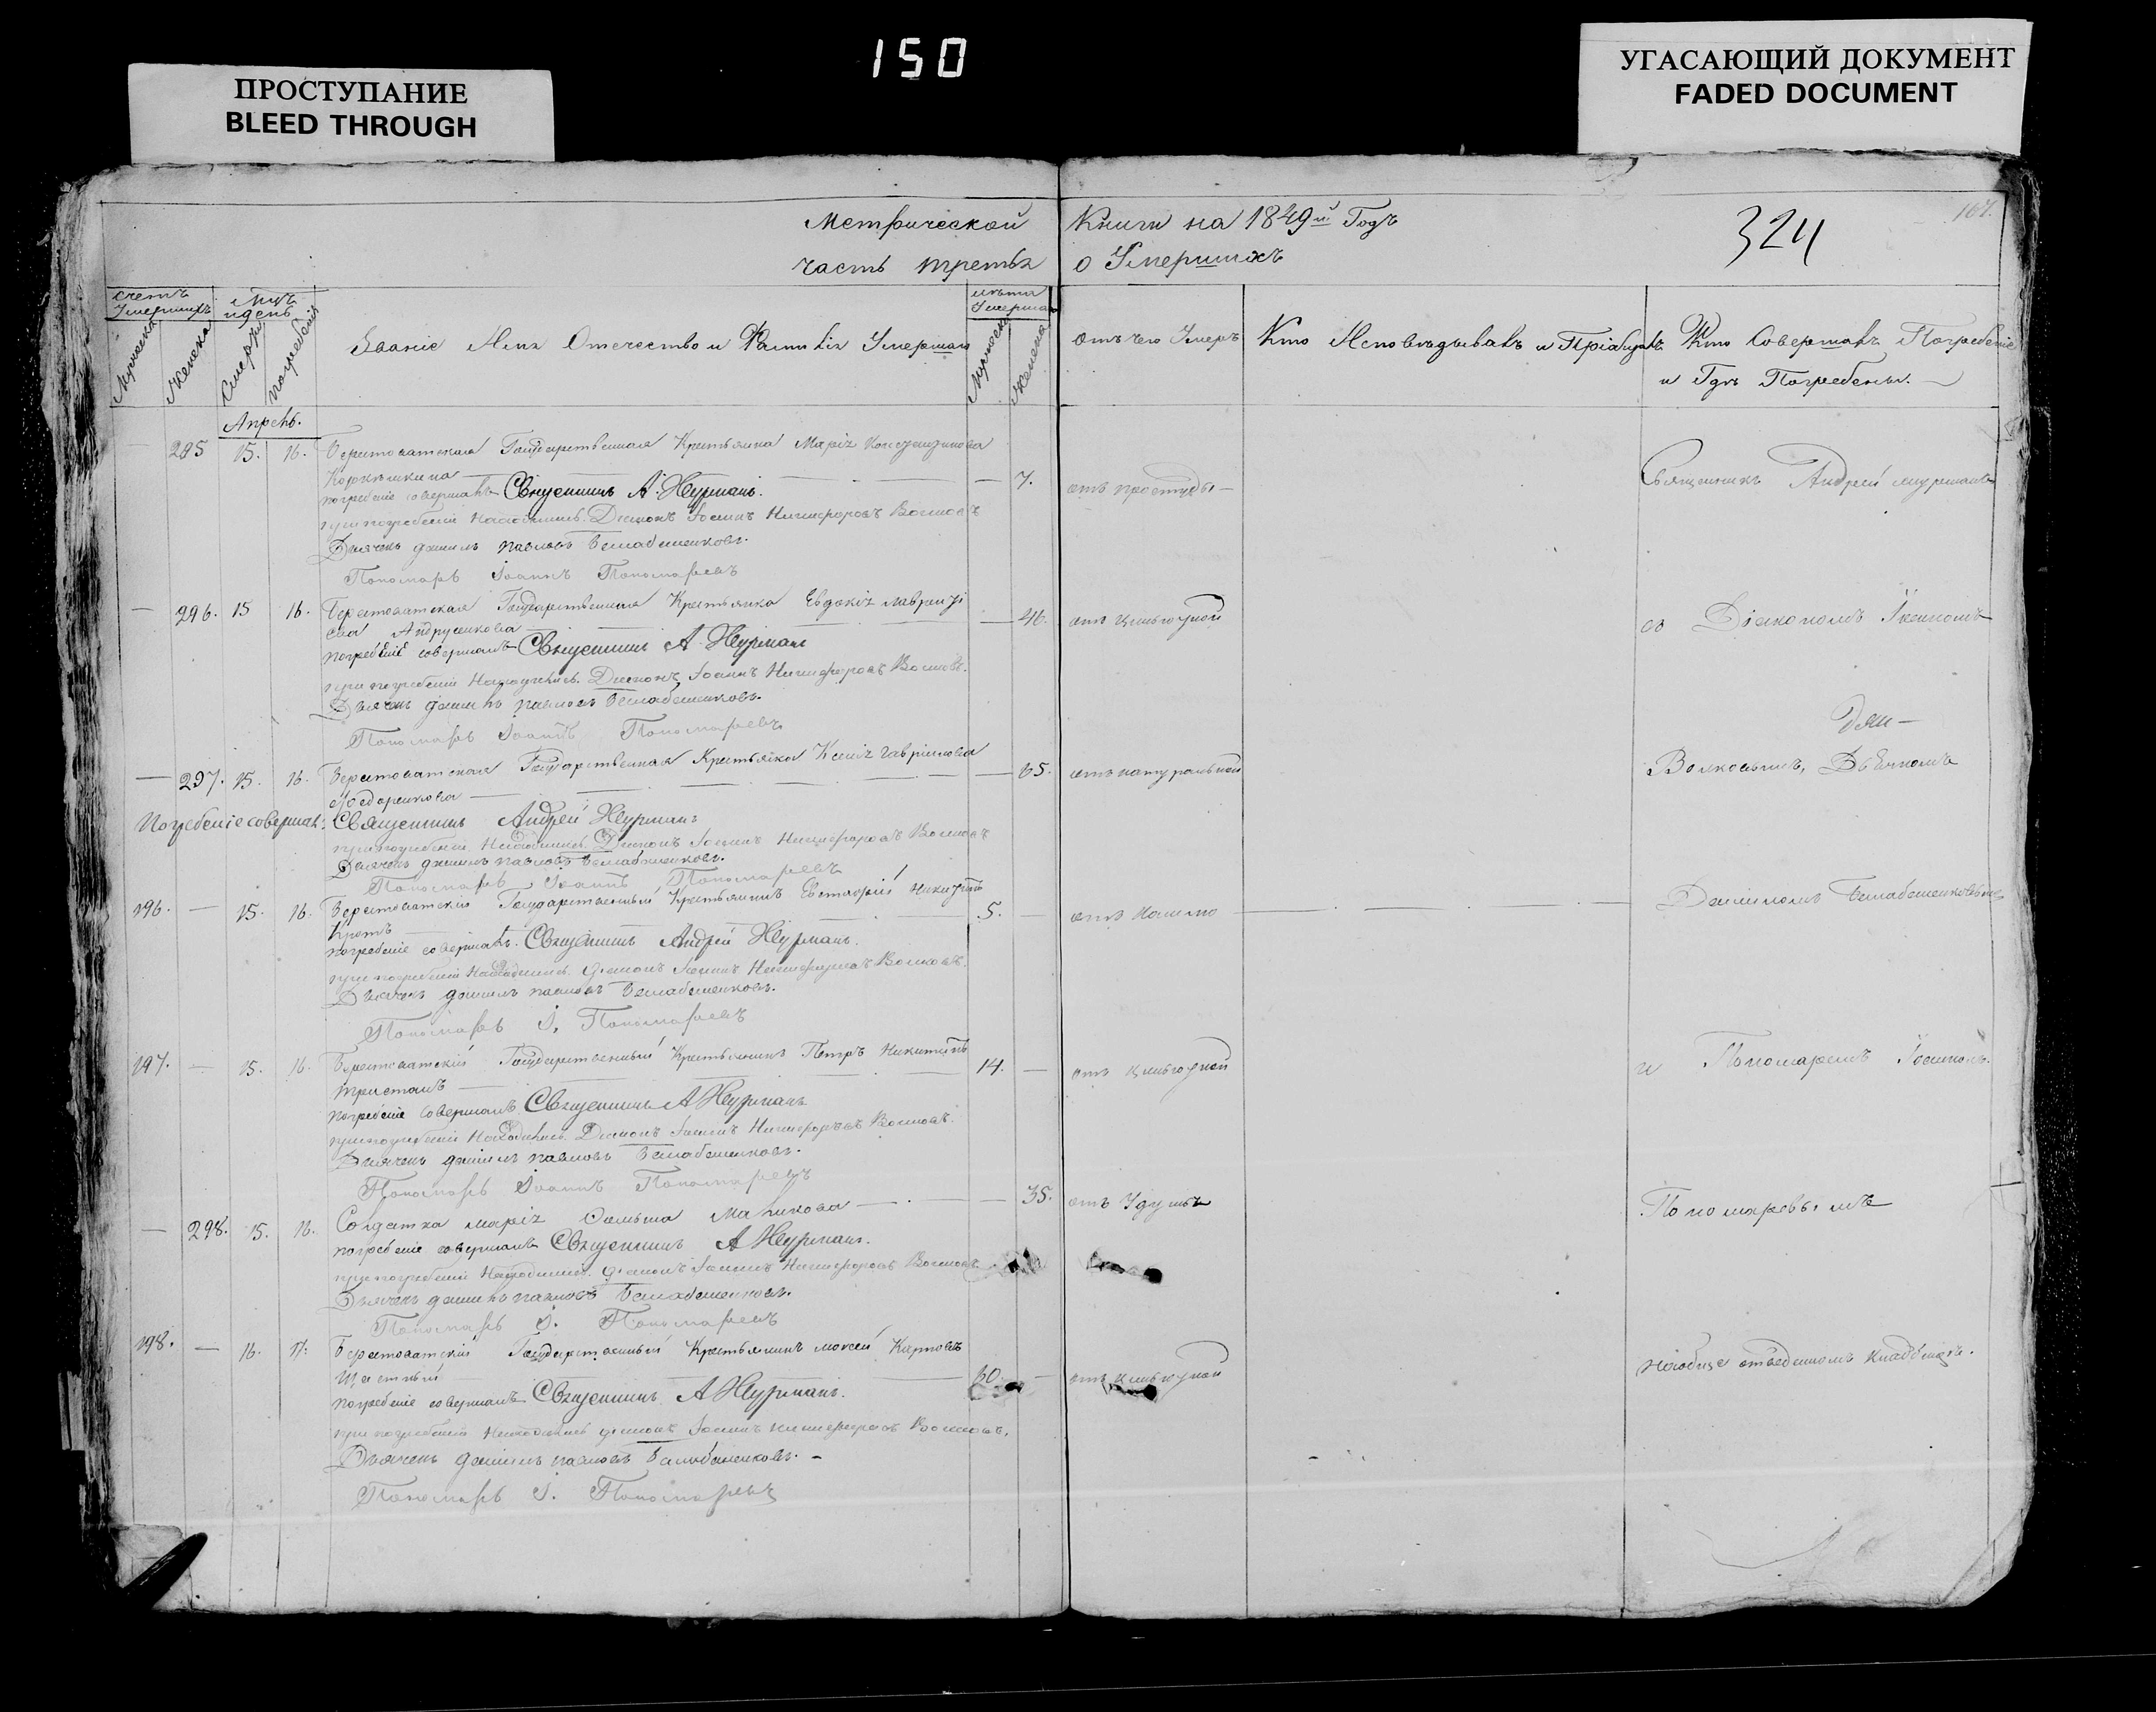 150
ПРОСТУПАНИЕ
BLEED THROUGH
УГАСАЮЩИЙ ДОКУМЕНТ
FADED DOCUMENT
Метрической Книги на 1849й Годъ
324
167.
часть третья о Умершихъ
счетъ Умершихъ
Мцъ и день
Званіе Имя Отечество и Фамилія Умершаго
лѣта Умершаго
отъ чего Умеръ
Кто Исповѣдывалъ и Пріобщалъ
Кто Совершалъ Погребеніе
и Гдѣ Погребены.
Мужеска
Женска
Смерти
погребенія
Мужеска
Женска
Апрель.
— 295 15. 16. Берестоватская Государственная Крестьянка Марія Константинова
— 7. отъ простуды —
Священникъ Андрей
погребеніе совершалъ Священникъ А.
при погребеніи находились. Діаконъ Іоаннъ Никифоровъ Волковъ
Дьячекъ Даніилъ Павловъ
Пономарь Іоаннъ Пономаревъ
— 296. 15 16. Берестоватская Государственная Крестьянка Евдокія Лаврентіева Андрусикова
— 46. отъ цынготной
со Діакономъ Іоанномъ
погребеніе совершалъ Священникъ А.
при погребеніи Находились. Діаконъ Іоаннъ Никифоровъ Волковъ.
Дьячекъ Даніилъ Павловъ
Пономарь Іоаннъ Пономаревъ
— 297. 15. 16. Берестоватская Государственная Крестьянка Ксенія Гавріилова
Федоренкова
— 65. отъ натуральной
Волковымъ, Дьячкомъ
Погребеніе совершалъ: Священникъ Андрей
при погребеніи Находились. Діаконъ Іоаннъ Никифоровъ Волковъ
Дьячекъ Даніилъ Павловъ
Пономарь Іоаннъ Пономаревъ
196. — 15. 16. Берестоватскій Государственный Крестьянинъ Евстафій Никитинъ
Кротъ
5. — отъ кашлю
Данііломъ
погребеніе совершалъ. Священникъ Андрей
при погребеніи Находились. Діаконъ Іоаннъ Никифоровъ Волковъ.
Дьячекъ Даніилъ Павловъ
Пономарь І. Пономаревъ
197. — 15. 16. Берестоватскій Государственный Крестьянинъ Петръ Никитинъ
Тристанъ
14. — отъ цынготной
и Пономаремъ Іоанномъ
погребеніе совершалъ Священникъ А
при погребеніи Находились. Діаконъ Іоаннъ Никифоровъ Волковъ.
Дьячекъ Даніилъ Павловъ
Пономарь Іоаннъ Пономаревъ
— 298. 15. 16. Солдатка Марія
— 35. отъ Удушья
Пономаревымъ
погребеніе совершалъ Священникъ А
при погребеніи Находились. Діаконъ Іоаннъ Никифоровъ Волковъ
Дьячекъ Даніилъ Павловъ
Пономарь І. Пономаревъ
198. — 16. 17. Берестоватскій Государственный Крестьянинъ Моисей Карповъ
60. — отъ цынготной
на обще отведенномъ кладбищѣ.
погребеніе совершалъ Священникъ А
при погребеніи Находились Діаконъ Іоаннъ Никифоровъ Волковъ.
Дьячекъ Даніилъ Павловъ
Пономарь І. Пономаревъ